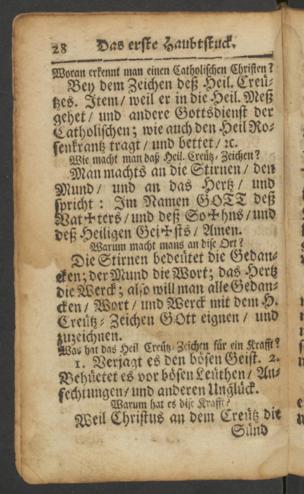 28 Das erste Haubtstuck.
Woran erkennt man einen Catholischen Christen?
Bey dem Zeichen deß Heil. Creü-
tzes. Item/ weil er in die Heil. Meß
gehet/ und andere Gottsdienst der
Catholischen; wie auch den Heil Ro-
senkrantz tragt/ und bettet/ ꝛc.
Wie macht man daß Heil. Creütz-Zeichen?
Man machts an die Stirnen/ den
Mund/ und an das Hertz/ und
spricht: Im Namen GOTT deß
Vat✝ters/ und deß So✝hns/ und
deß Heiligen Gei✝sts/ Amen.
Warum macht mans an dise Ort?
Die Stirnen bedeütet die Gedan-
cken; der Mund die Wort; das Hertz
die Werck; also will man alle Gedan-
cken/ Wort/ und Werck mit dem H.
Creütz-Zeichen GOtt eignen/ und
zuzeichnen.
Was hat das Heil Creütz-Zeichen für ein Krafft?
1. Verjagt es den bösen Geist. 2.
Behüetet es vor bösen Leüthen/ An-
fechtungen/ und anderen Unglück.
Warum hat es dise Krafft?
Weil Christus an dem Creütz die
Sünd